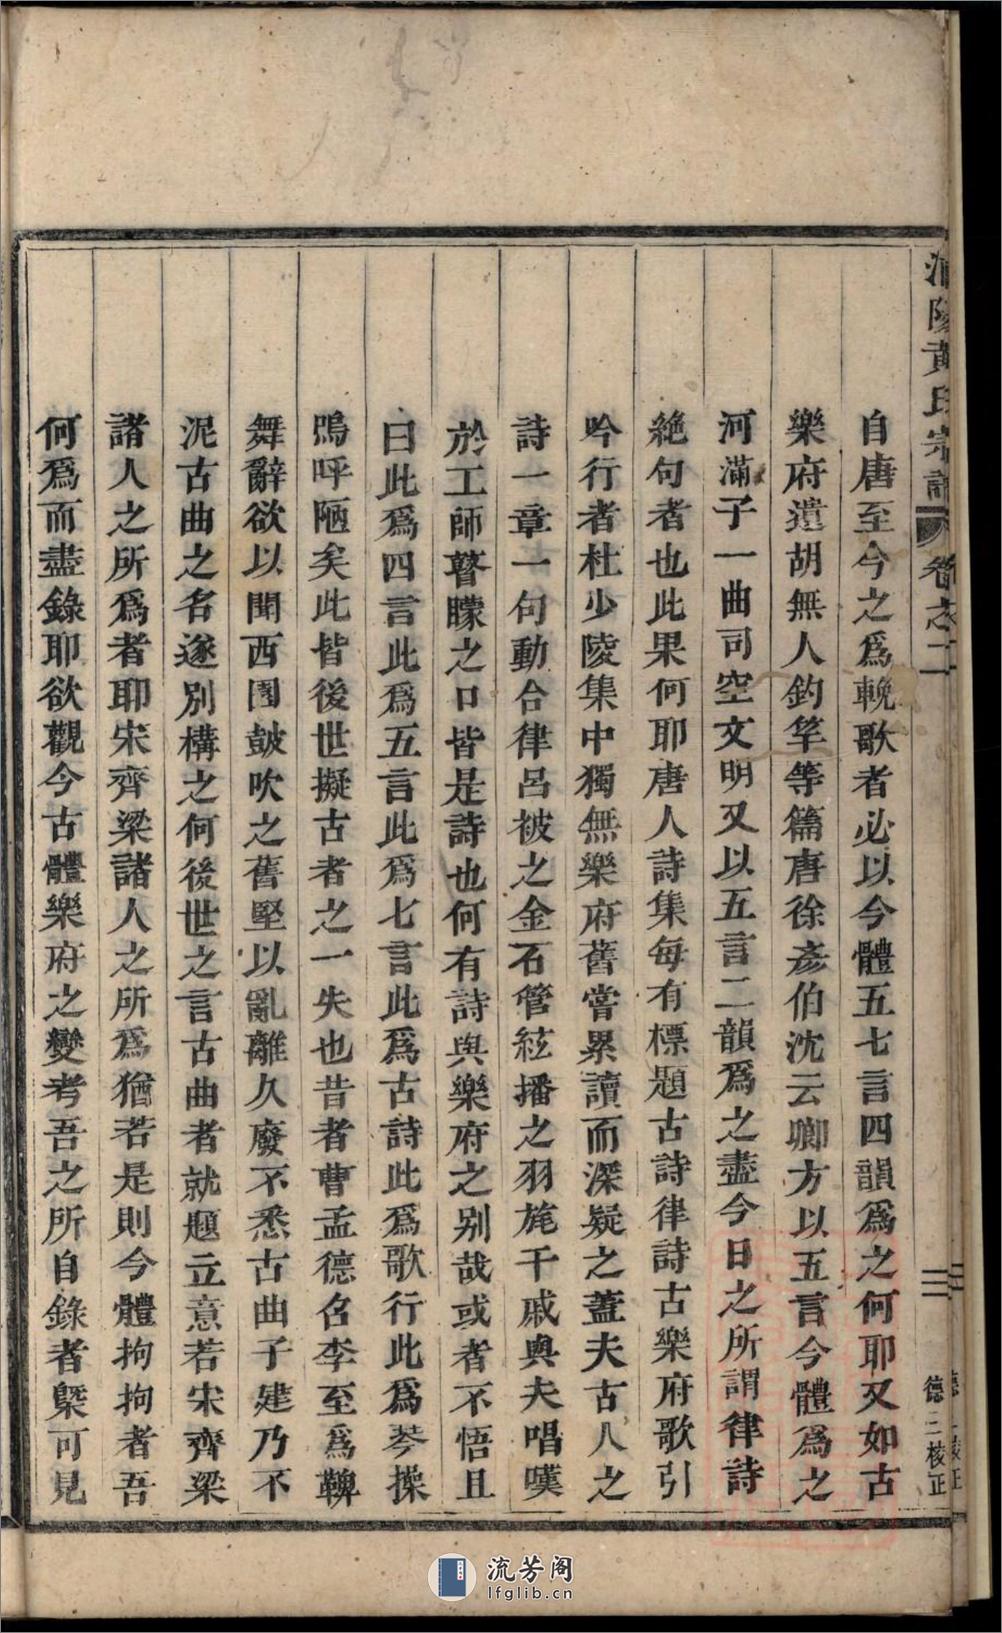 浦陽黃氏宗譜 卷之二
三
德三校正
自唐至今之爲輓歌者必以今體五七言四韻爲之何耶又如古
樂府遺胡無人釣竿等篇唐徐彥伯沈云卿方以五言今體爲之
河滿子一曲司空文明又以五言二韻爲之盡今日之所謂律詩
絶句者也此果何耶唐人詩集每有標題古詩律詩古樂府歌引
吟行者杜少陵集中獨無樂府舊嘗累讀而深疑之蓋夫古人之
詩一章一句動合律呂被之金石管絃播之羽旄干戚與夫唱嘆
於工師瞽矇之口皆是詩也何有詩與樂府之别哉或者不悟且
曰此爲四言此爲五言此爲七言此爲古詩此爲歌行此爲琴操
嗚呼陋矣此皆後世擬古者之一失也昔者曹孟德召李至爲鞞
舞辭欲以聞西園鼓吹之舊堅以亂離久廢不悉古曲子建乃不
泥古曲之名遂別構之何後世之言古曲者就題立意若宋齊梁
諸人之所爲者耶宋齊梁諸人之所爲猶若是則今體拘拘者吾
何爲而盡錄耶欲觀今古體樂府之變考吾之所自錄者槩可見
流芳阁
lfglib.cn